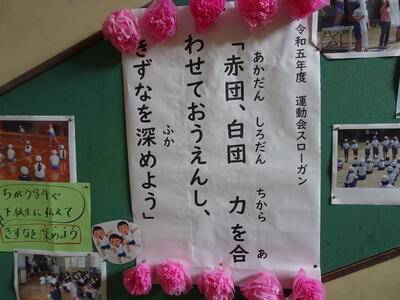 令和五年度 運動会スローガン
「赤団、白団 力を合
あかだん しろだん ちから あ
わせておうえんし、
きずなを深めよう」
ふか
ちがう学年や
下級生に伝えて
きずなを深めよう